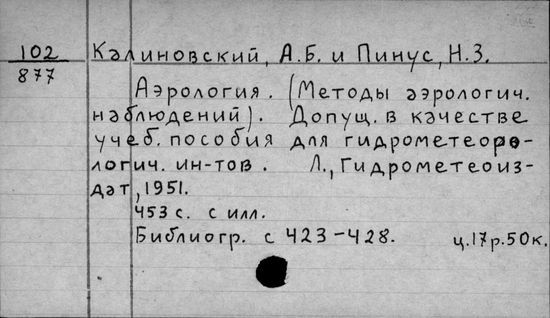 102
877
Калиновский, А.Б. и Пинус, Н.З.
Аэрология. (Методы аэрологич.
наблюдений). Допущ. в качестве
учеб. пособия для гидрометеоро-
логич. ин-тов. Л., Гидрометеоиз-
дат, 1951.
453 с. с илл.
Библиогр. с 423-428. ц.17р.50к.